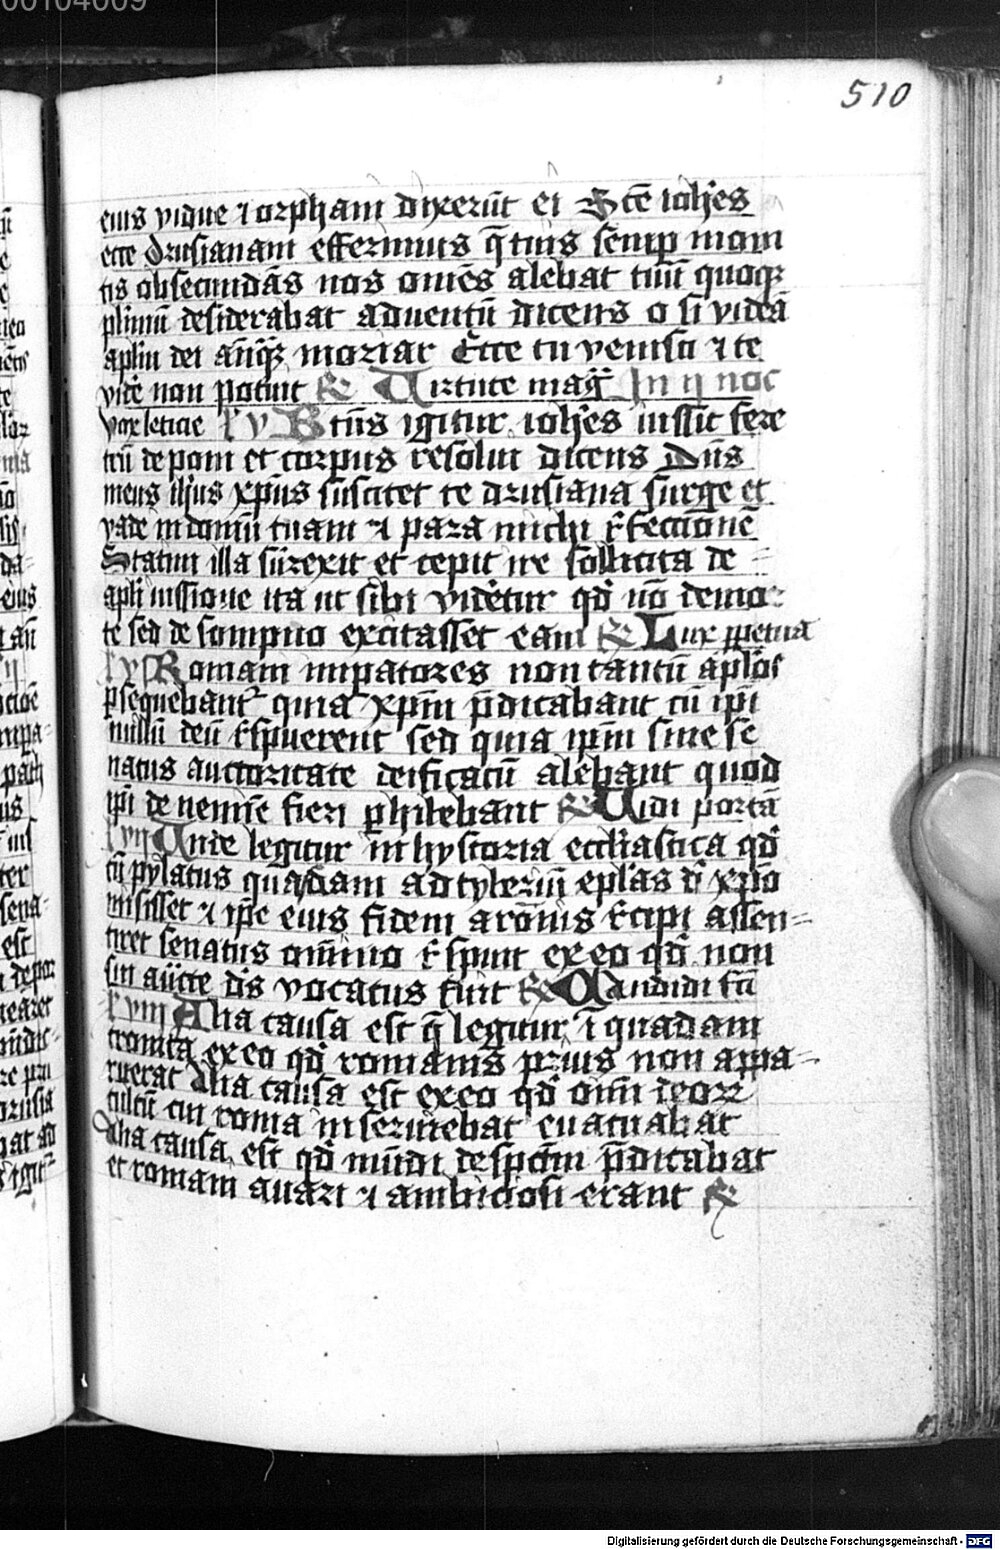 510
eius vidue ⁊ orphani dixerūt ei Scē ioh̄es
ecce drusianam efferimus q̄ tuis semꝑ moni
tis obsecundās nos om̄es alebat tuū quoqꝫ
plimū desiderabat aduentū dicens o si videā
aplm̄ dei an̄qꝫ moriar Ecce tu venisti ⁊ te
vidē non potuit ℟ Virtute mag̅ In ij noc
vox leticie l v Btūs igitur ioh̄es iussit fere
trū deponi et corpus resolui dicens Dn̄s
meus ih̄us xp̄us suscitet te drusiana surge et
vade in domū tuam ⁊ para michi r̄fectionē
Statim illa surrexit et cepit ire sollicita de
apl̄i iussione ita ut sibi videtur qd̄ nō de mor
te sed de sompno excitasset eam ℟ Lux ꝑpetua
l vj Romani imꝑatores non tantū apl̄os
ꝑsequebant̄ quia xp̄m p̄dicabant cū ip̄i
nullū deū r̄spuerent sed quia ip̄m sine se
natus auctoritate deificatū alebant quod
ip̄i de nemīe fieri ꝓhibebant ℟ Vidi portā
l vij Unde legitur in hystoria eccl̄iastica qd̄
cū pylatus quādam ad tyberiū ep̄las d̄ xp̄o
misisset ⁊ ip̄e eius fidem a romīs r̄cipi assen-
tiret senatus om̄ino r̄spuit ex eo qd̄ non
sua aūcte dīs vocatus fuit ℟ Candidi fcī
l viij Alia causa est q̄ legitur ī quadam
cronica ex eo qd̄ romanis prius non appa-
ruerat Alia causa est ex eo qd̄ om̄i deorꝝ
cultū cui roma inseruiebat euacuabat
Alia causa est qd̄ mūdi despctm̄ p̄dicabat
et romani auari ⁊ ambiciosi erant ℟
Digitalisierung gefördert durch die Deutsche Forschungsgemeinschaft - DFG